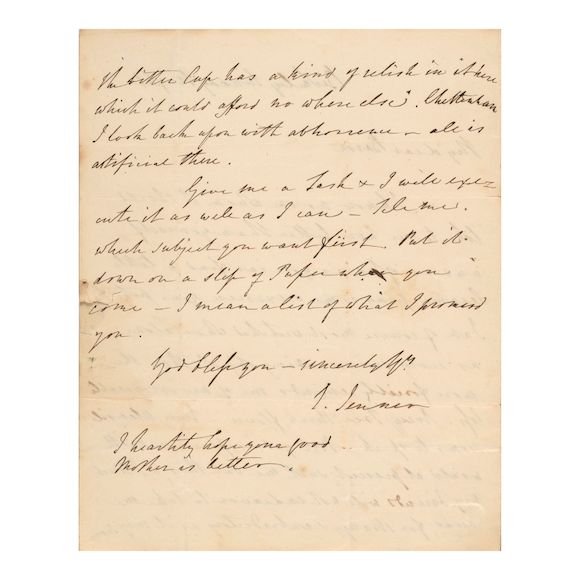 "the bitter Cup has a kind of relish in it here
which it could afford no where else". Cheltenham
I look back upon with abhorrence – all is
artificial there.
Give me a Task & I will exe=
cute it as well as I can – Tell me
which subject you want first. Put it
down on a slip of Paper when you
come – I mean a list of what I promised
you.
God bless you – sincerely Yrs
E. Jenner
I heartily hope your good
Mother is better.